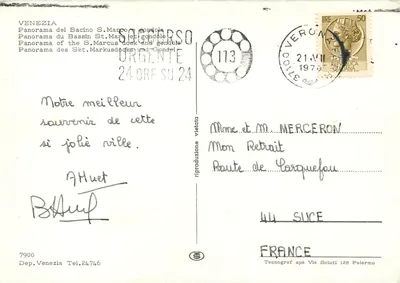 VENEZIA
Panorama del Bacino S. Marco e gondole
Panorama du Bassin St. Marc et gondole
Panorama of the S. Marcus dock and gondole
Panorama des Skt. Markusdocks und
SOCCORSO
URGENTE
24 ORE SU 24
113
VERONA
37100
50
Notre meilleur
souvenir de cette
si jolie ville.
AHuet
Mme et M. MERCERON
Mon Retrait
Route de Carquefou
44 SUCE
FRANCE
riproduzione vietata
7900
Dep. Venezia Tel. 24746
Tecnograf spa Via
Palermo